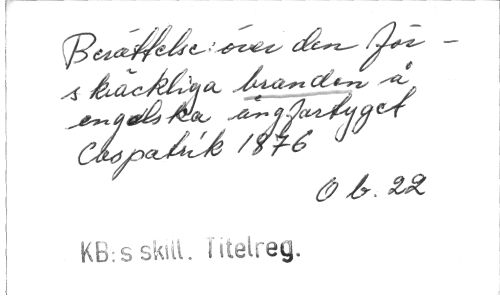 Berättelse över den för-
skräckliga branden å
engelska ångfartyget
Cospatrik 1876
O b. 22
KB:s skill. Titelreg.